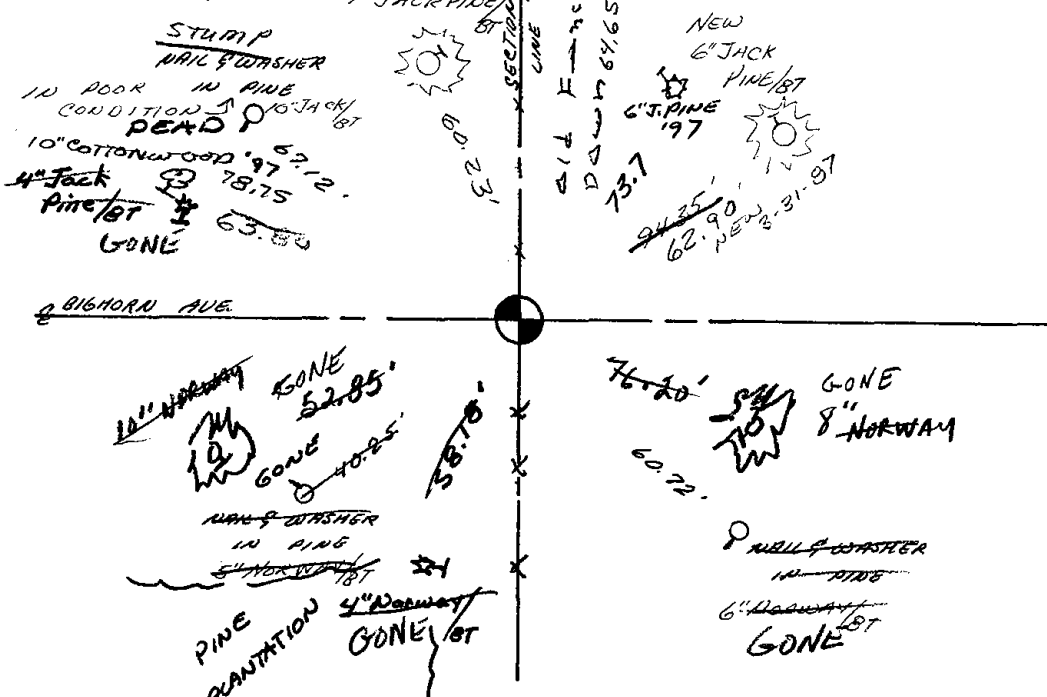 JACK PINE/
BT
STUMP
NAIL & WASHER
IN POOR IN PINE
CONDITION 10" JACK/
BT
DEAD
10" COTTONWOOD '97
67.12'
4" Jack
Pine/BT
78.75
63.80
GONE
60.23'
SECTION
LINE
Old Fence
Down 64.65
NEW
6" JACK
PINE/BT
6" J. PINE
'97
73.7
94.35'
62.90'
NEW 3-31-97
℄ BIGHORN AVE.
10" NORWAY
GONE
52.85'
GONE
40.25'
58.18'
NAIL & WASHER
IN PINE
5" NORWAY/BT
PINE
PLANTATION
4" Norway/
BT
GONE
76.20'
GONE
8" NORWAY
60.72'
NAIL & WASHER
IN PINE
6" NORWAY/
BT
GONE